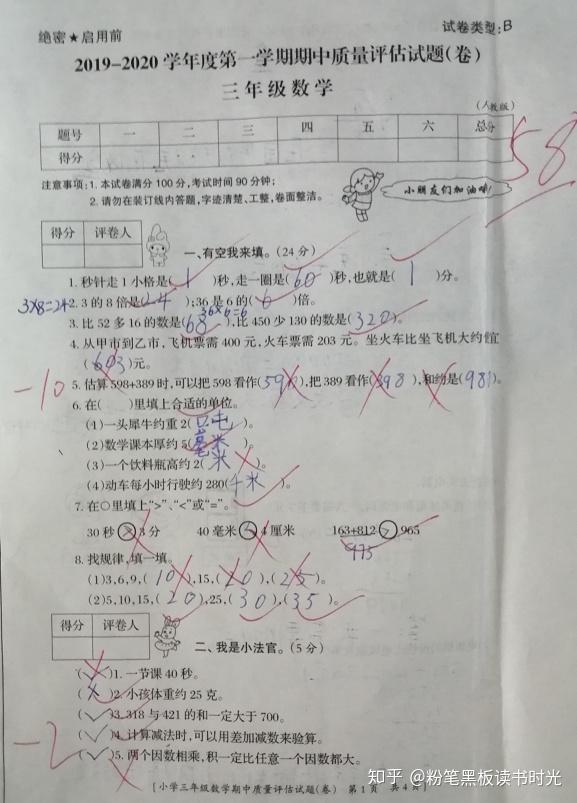 绝密★启用前
试卷类型:B
2019-2020学年度第一学期期中质量评估试题(卷)
三年级数学
(人教版)
题号 一 二 三 四 五 六 总分
得分
58
注意事项:1.本试卷满分100分,考试时间90分钟;
2.请勿在装订线内答题,字迹清楚、工整,卷面整洁。
小朋友们加油哦!
得分 评卷人
一、有空我来填。(24分)
1.秒针走1小格是( 1 )秒,走一圈是( 60 )秒,也就是( 1 )分。
3×8=24 2.3的8倍是(24);36是6的( 6 )倍。
3.比52多16的数是( 68 ),比450少130的数是(320)。
4.从甲市到乙市,飞机票需400元,火车票需203元。坐火车比坐飞机大约便宜
(603)元。
-10
5.估算598+389时,可以把598看作(),把389看作(398),和约是(981)。
6.在( )里填上合适的单位。
(1)一头犀牛约重2(吨)。
(2)数学课本厚约5(毫米)。
(3)一个饮料瓶高约2(米)。
(4)动车每小时行驶约280(千米)。
7.在○里填上“>”、“<”或“=”。
30秒 > 3分 40毫米 4厘米 163+812 > 965
975
8.找规律,填一填。
(1)3,6,9,(10),15,(20),(25)。
(2)5,10,15,(20),25,(30),(35)。
得分 评卷人
二、我是小法官。(5分)
(✓)1.一节课40秒。
(×)2.小孩体重约25克。
(✓)3.318与421的和一定大于700。
(✓)4.计算减法时,可以用差加减数来验算。
-2
(✓)5.两个因数相乘,积一定比任意一个因数都大。
[小学三年级数学期中质量评估试题(卷) 第1页 共4页]
知乎 @粉笔黑板读书时光